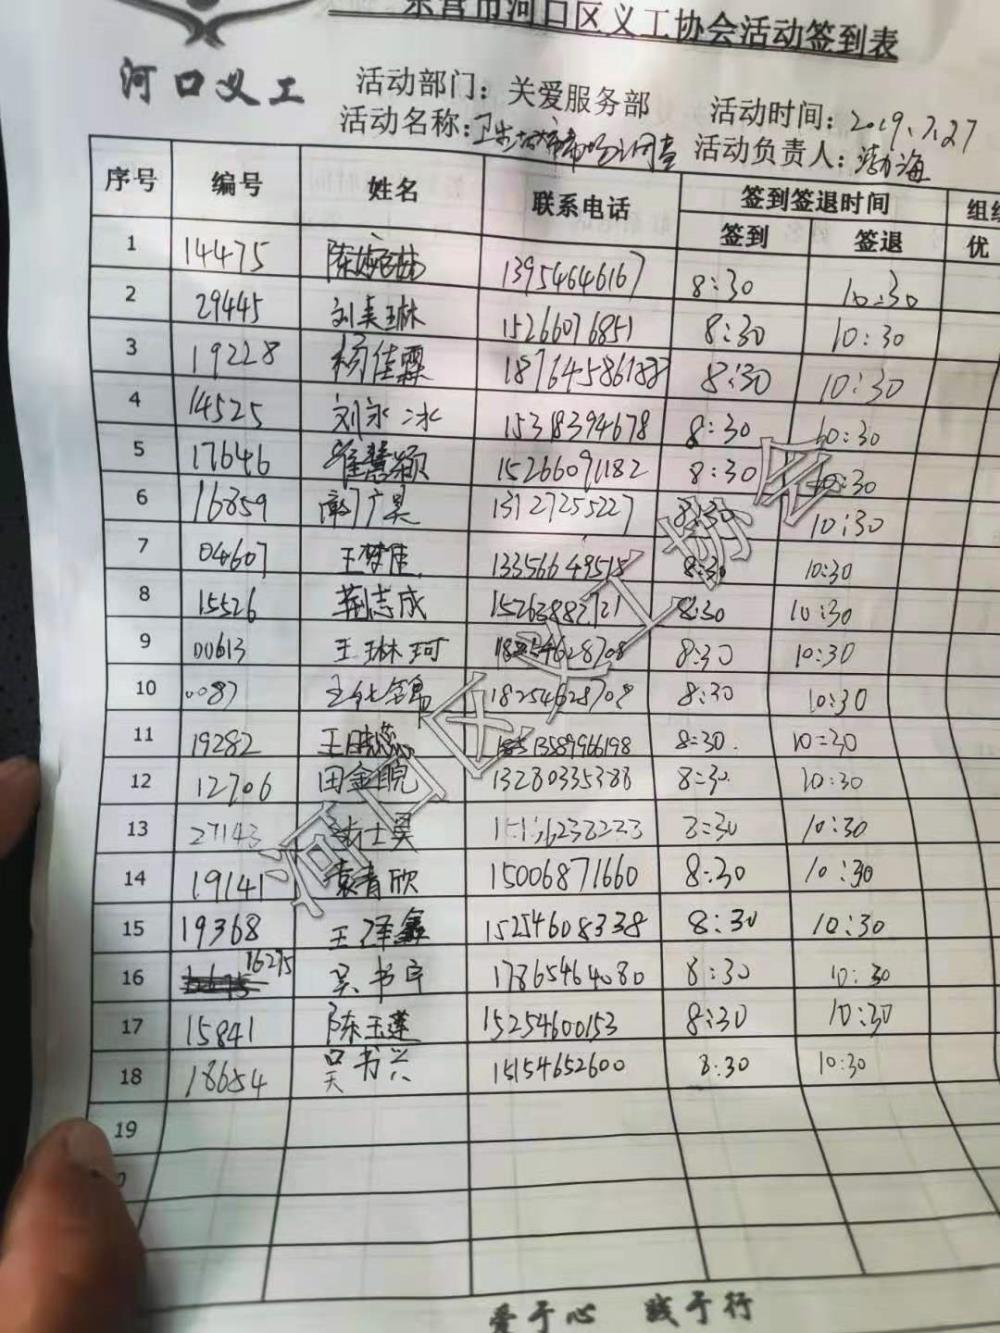 东营市河口区义工协会活动签到表
河口义工
活动部门：关爱服务部 活动时间：2019.7.27
活动名称： 活动负责人：渤海
序号 编号 姓名 联系电话 签到签退时间
签到 签退 优
1 14475 陈婉 13954646167 8:30 10:30
2 29445 刘美琳 15266076851 8:30 10:30
3 19228 杨佳霖 8:30 10:30
4 14525 刘永冰 15318394678 8:30 10:30
5 17646 崔慧颖 15266091182 8:30 10:30
6 16859 广昊 13127255227 8:30 10:30
7 04607 王梦 8:30 10:30
8 15526 荆志成 8:30 10:30
9 00613 王琳珂 8:30 10:30
10 0087 18254628708 8:30 10:30
11 19282 王 13589966198 8:30 10:30
12 12706 田金 13280335388 8:30 10:30
13 27143 8:30 10:30
14 19141 袁青欣 15006871660 8:30 10:30
15 19368 王泽鑫 15254608338 8:30 10:30
16 16275 吴书宇 17865464080 8:30 10:30
17 15841 陈玉莲 15254600153 8:30 10:30
18 18654 吴书兴 15154652600 8:30 10:30
19
河口区义工协会
爱于心 践于行